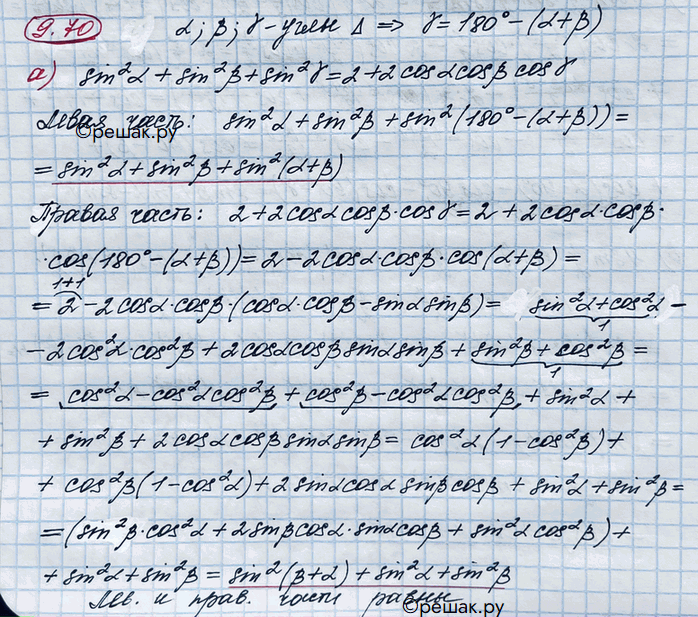 9.70 α; β; γ - углы Δ => γ = 180° - (α+β)
а) sin²α + sin²β + sin²γ = 2 + 2 cosα cosβ cosγ
Левая часть: sin²α + sin²β + sin²(180° - (α+β)) =
©решак.ру
= sin²α + sin²β + sin²(α+β)
Правая часть: 2 + 2cosα cosβ · cosγ = 2 + 2cosα · cosβ ·
· cos(180° - (α+β)) = 2 - 2cosα · cosβ · cos(α+β) =
1+1
= 2 - 2cosα · cosβ · (cosα · cosβ - sinα sinβ) = sin²α + cos²α -
1
- 2cos²α · cos²β + 2cosα cosβ sinα sinβ + sin²β + cos²β =
1
= cos²α - cos²α cos²β + cos²β - cos²α cos²β + sin²α +
+ sin²β + 2 cosα cosβ sinα sinβ = cos²α (1 - cos²β) +
+ cos²β (1 - cos²α) + 2 sinα cosα sinβ cosβ + sin²α + sin²β =
= (sin²β · cos²α + 2 sinβ cosα · sinα cosβ + sin²α cos²β) +
+ sin²α + sin²β = sin²(β+α) + sin²α + sin²β
Лев. и прав. части равны
©решак.ру